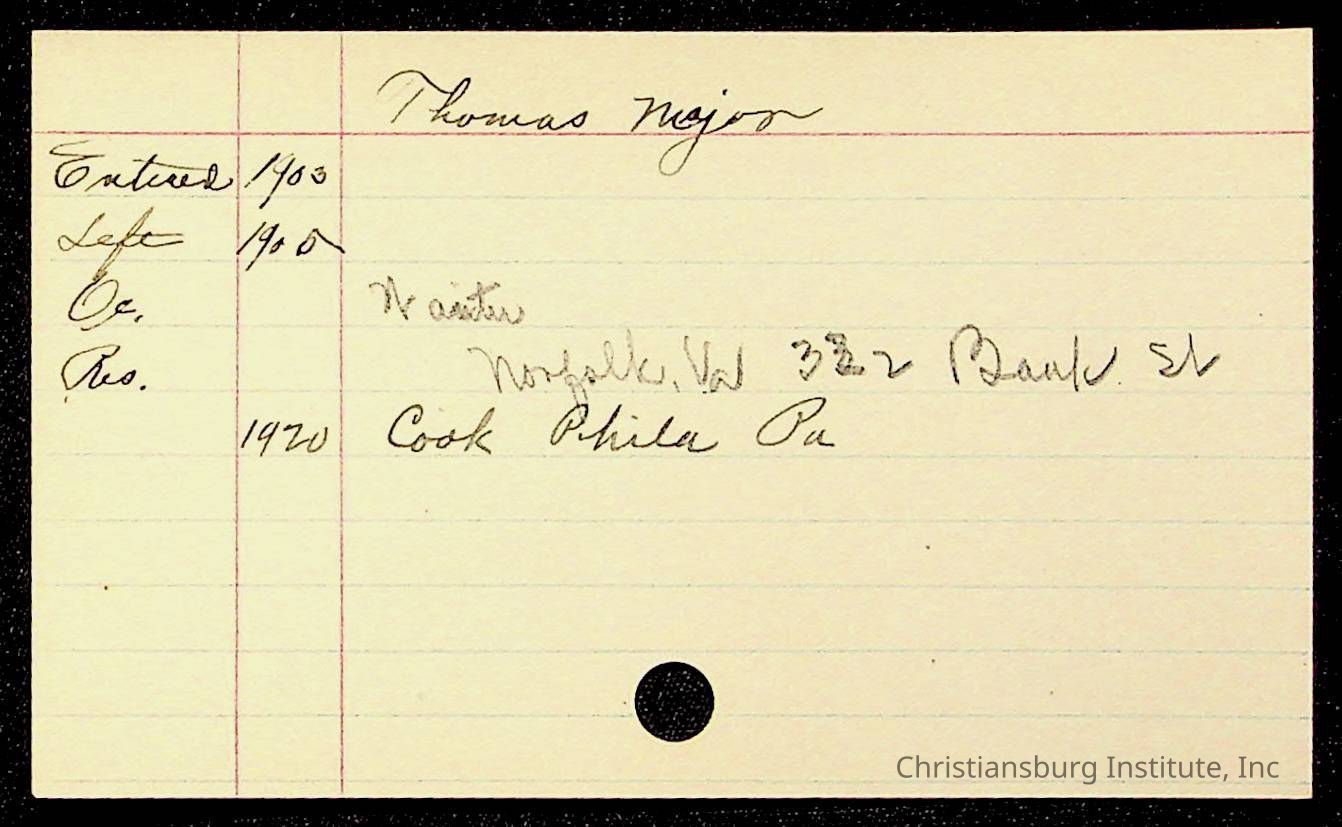 Thomas Major
Entered 1903
Left 1905
Oc. Waiter
Res. Norfolk, Va 332 Bank St
1920 Cook Phila Pa
Christiansburg Institute, Inc